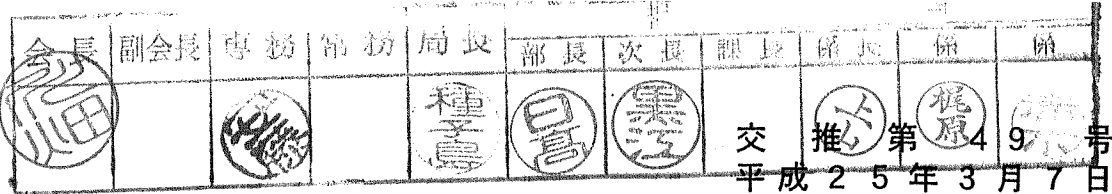 会長 副会長 専務 常務 局長 部長 次長 課長 係長 係 係
種子島 日高 黒江 梶原
交推第49号
平成25年3月7日